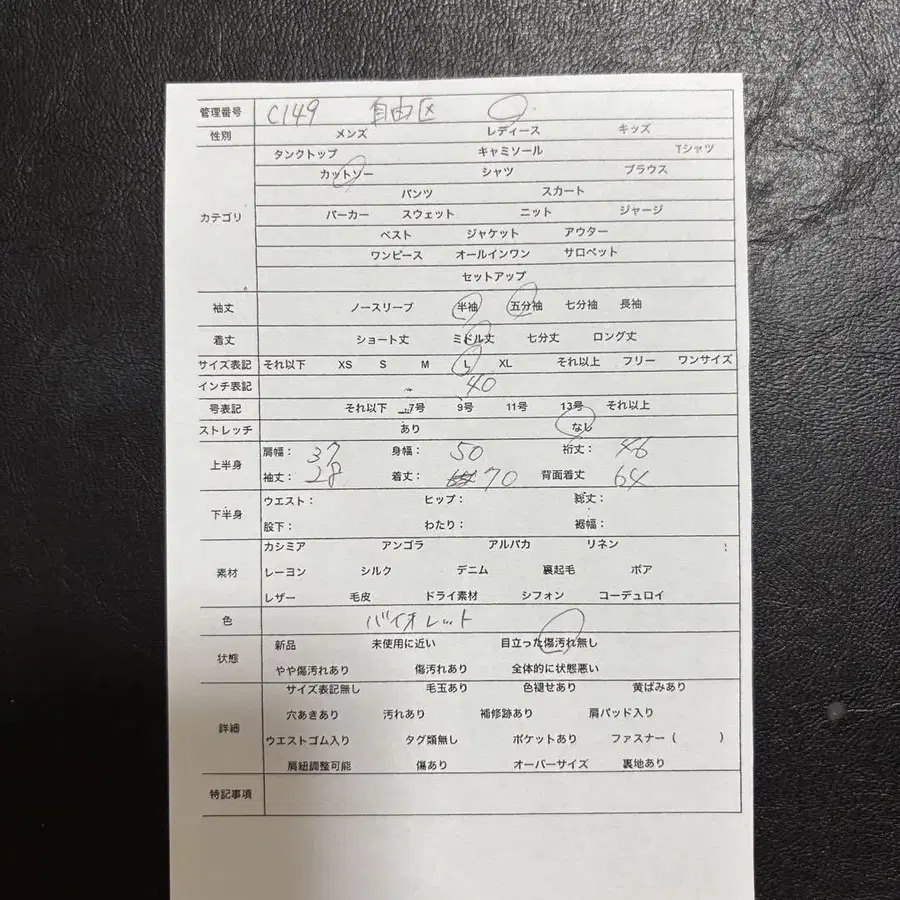 管理番号 C149 自由区
性別 メンズ レディース キッズ
カテゴリ
タンクトップ キャミソール Tシャツ
カットソー シャツ ブラウス
パンツ スカート
パーカー スウェット ニット ジャージ
ベスト ジャケット アウター
ワンピース オールインワン サロペット
セットアップ
袖丈 ノースリーブ 半袖 五分袖 七分袖 長袖
着丈 ショート丈 ミドル丈 七分丈 ロング丈
サイズ表記 それ以下 XS S M L XL それ以上 フリー ワンサイズ
インチ表記 40
号表記 それ以下 7号 9号 11号 13号 それ以上
ストレッチ あり なし
上半身
肩幅: 37 身幅: 50 裄丈: 46
袖丈: 28 着丈: 70 背面着丈 64
下半身
ウエスト: ヒップ: 総丈:
股下: わたり: 裾幅:
素材
カシミア アンゴラ アルパカ リネン
レーヨン シルク デニム 裏起毛 ボア
レザー 毛皮 ドライ素材 シフォン コーデュロイ
色 バイオレット
状態
新品 未使用に近い 目立った傷汚れ無し
やや傷汚れあり 傷汚れあり 全体的に状態悪い
詳細
サイズ表記無し 毛玉あり 色褪せあり 黄ばみあり
穴あきあり 汚れあり 補修跡あり 肩パッド入り
ウエストゴム入り タグ類無し ポケットあり ファスナー( )
肩紐調整可能 傷あり オーバーサイズ 裏地あり
特記事項